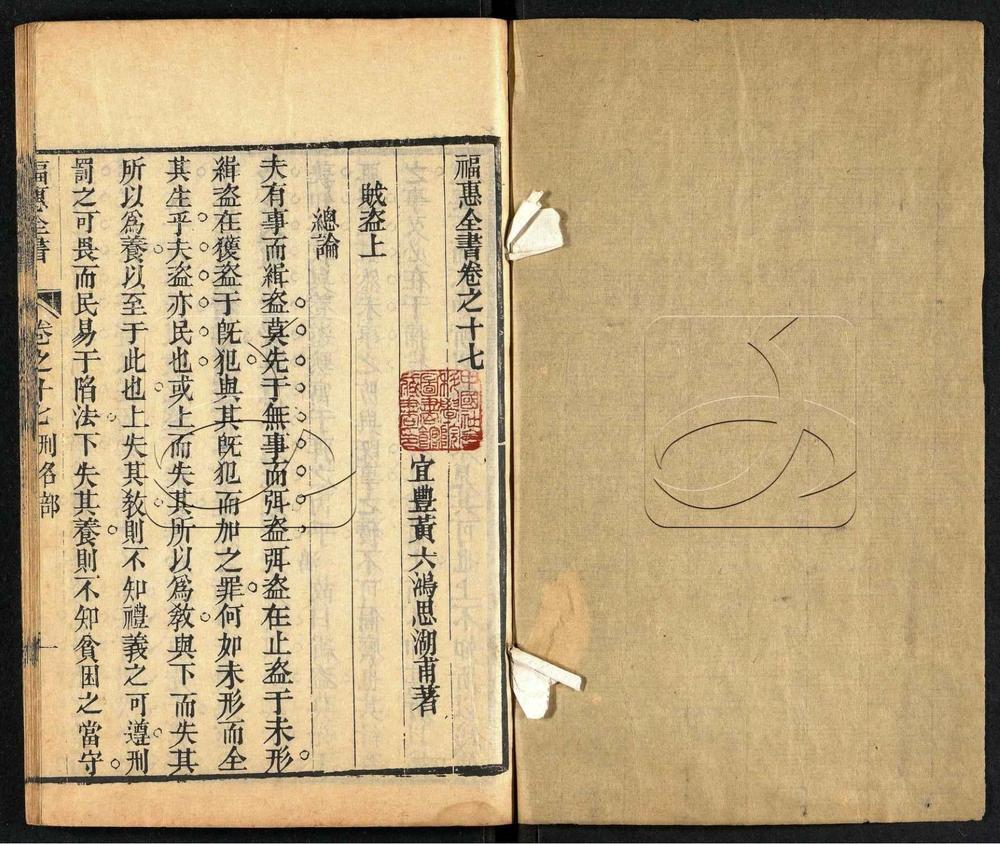 福惠全書卷之十七
宜豐黃六鴻思湖甫著
賊盜上
總論
夫有事而緝盜莫先于無事而弭盜弭盜在止盜于未形
緝盜在獲盜于旣犯與其旣犯而加之罪何如未形而全
其生乎夫盜亦民也或上而失其所以爲敎與下而失其
所以爲養以至于此也上失其敎則不知禮義之可遵刑
罰之可畏而民易于陷法下失其養則不知貧困之當守
福惠全書
卷之十七刑名部
一